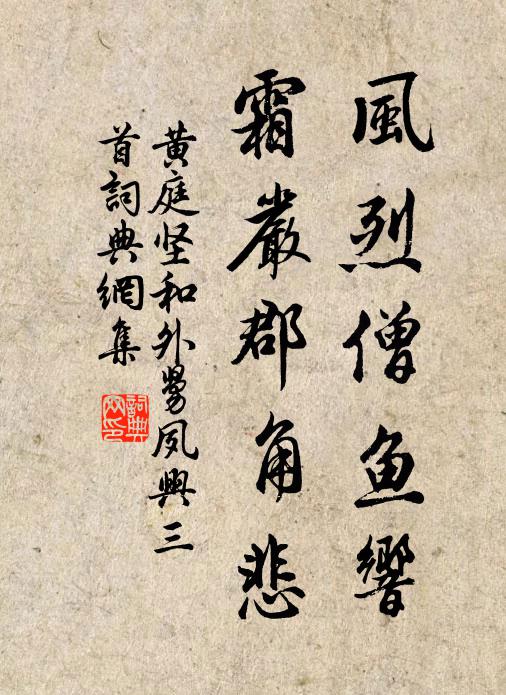 風烈僧魚響
霜嚴郡角悲
黄庭坚和外舅夙興三
首詞典網集
詞典网印